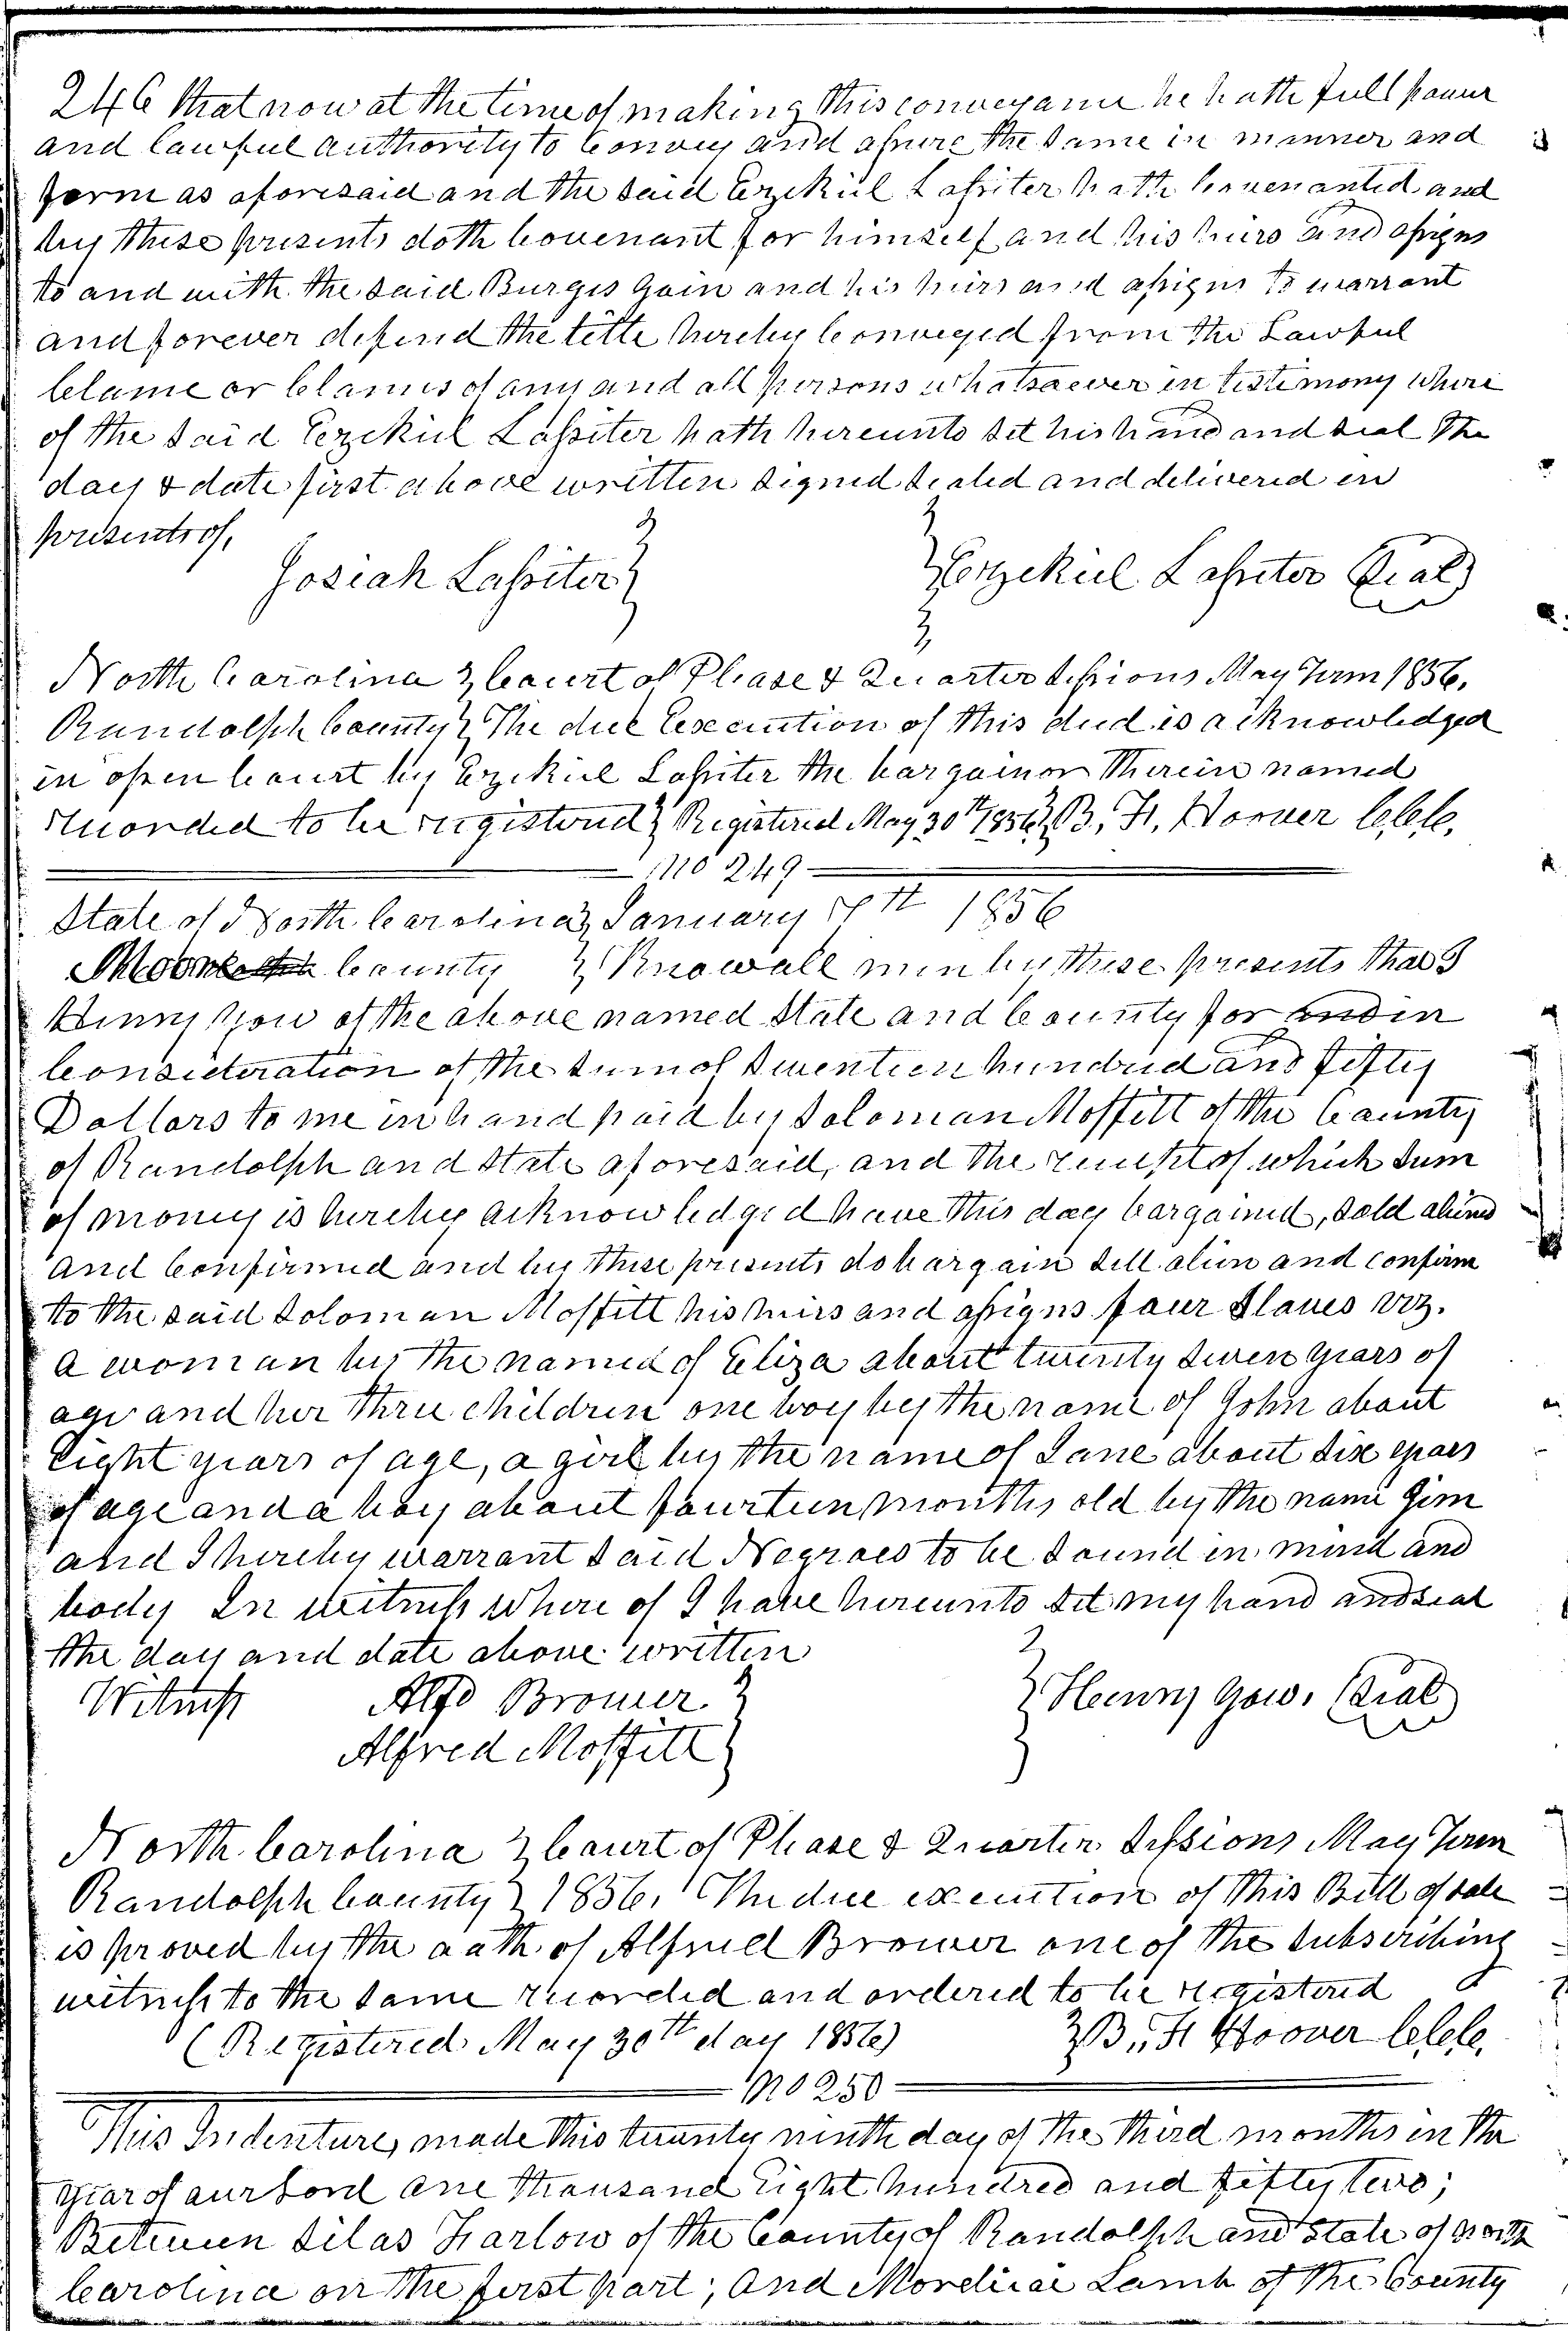 246 that now at the time of making this conveyance he hath full power
and lawful authority to Convey and assure the same in manner and
form as aforesaid and the said Ezekiel Lassiter hath Covenanted and
by these presents doth Covenant for himself and his heirs and assigns
to and with the said Burgis Gain and his heirs and assigns to warrant
and forever defend the title hereby Conveyed from the Lawful
Clame or Clames of any and all persons whatsaever in testimony where
of the said Ezekiel Lassiter hath hereunto set his hand and seal the
day & date first above written signed sealed and delivered in
presents of,
Josiah Lassiter
Ezekiel Lassiter (Seal)
North Carolina Court of Please & Quarter Sessions May Term 1856.
Randolph County The due Execution of this deed is acknowledged
in open Court by Ezekiel Lassiter the bargainor Therein named
recorded to be registered Registered May 30th 1856 B. H. Hoover C.C.C.
No 249
State of North Carolina January 1856
Moore County Know all men by these presents that I
Henry Yow of the above named State and County for and in
Consideration of the sum of Seventien hundred and fifty
Dollars to me in hand paid by Soloman Moffitt of the County
of Randolph and State aforesaid, and the receipt of which sum
of money is hereby acknowledged have this day bargained, sold aliened
and Confirmed and by these presents do bargain sell alien and confirm
to the said Soloman Moffitt his heirs and assigns four Slaves viz.
a woman by the named of Eliza about twenty seven years of
age and her three children one boy by the name of John about
Eight years of age, a girl by the name of Jane about six years
of age and a boy about fourteen months old by the name Jim
and I hereby warrant said Negroes to be sound in mind and
body In witness where of I have hereunto set my hand and seal
the day and date above written
Witness Alfd Brower
Henry Yow. (Seal)
Alfred Moffitt
North Carolina Court of Please & Quarter Sessions May Term
Randolph County 1856. The due execution of this Bill of sale
is proved by the oath of Alfred Brower one of the subscribing
witness to the same recorded and ordered to be registerd
(Registered May 30th day 1856) B. H Hoover C.C.C.
No 250
This Indenture, made this twenty ninth day of the third months in the
year of our Lord one thousand Eight hundred and fifty two;
Between Silas Harlow of the County of Randolph and State of North
Carolina on the first part; And Mordicai Lamb of the County